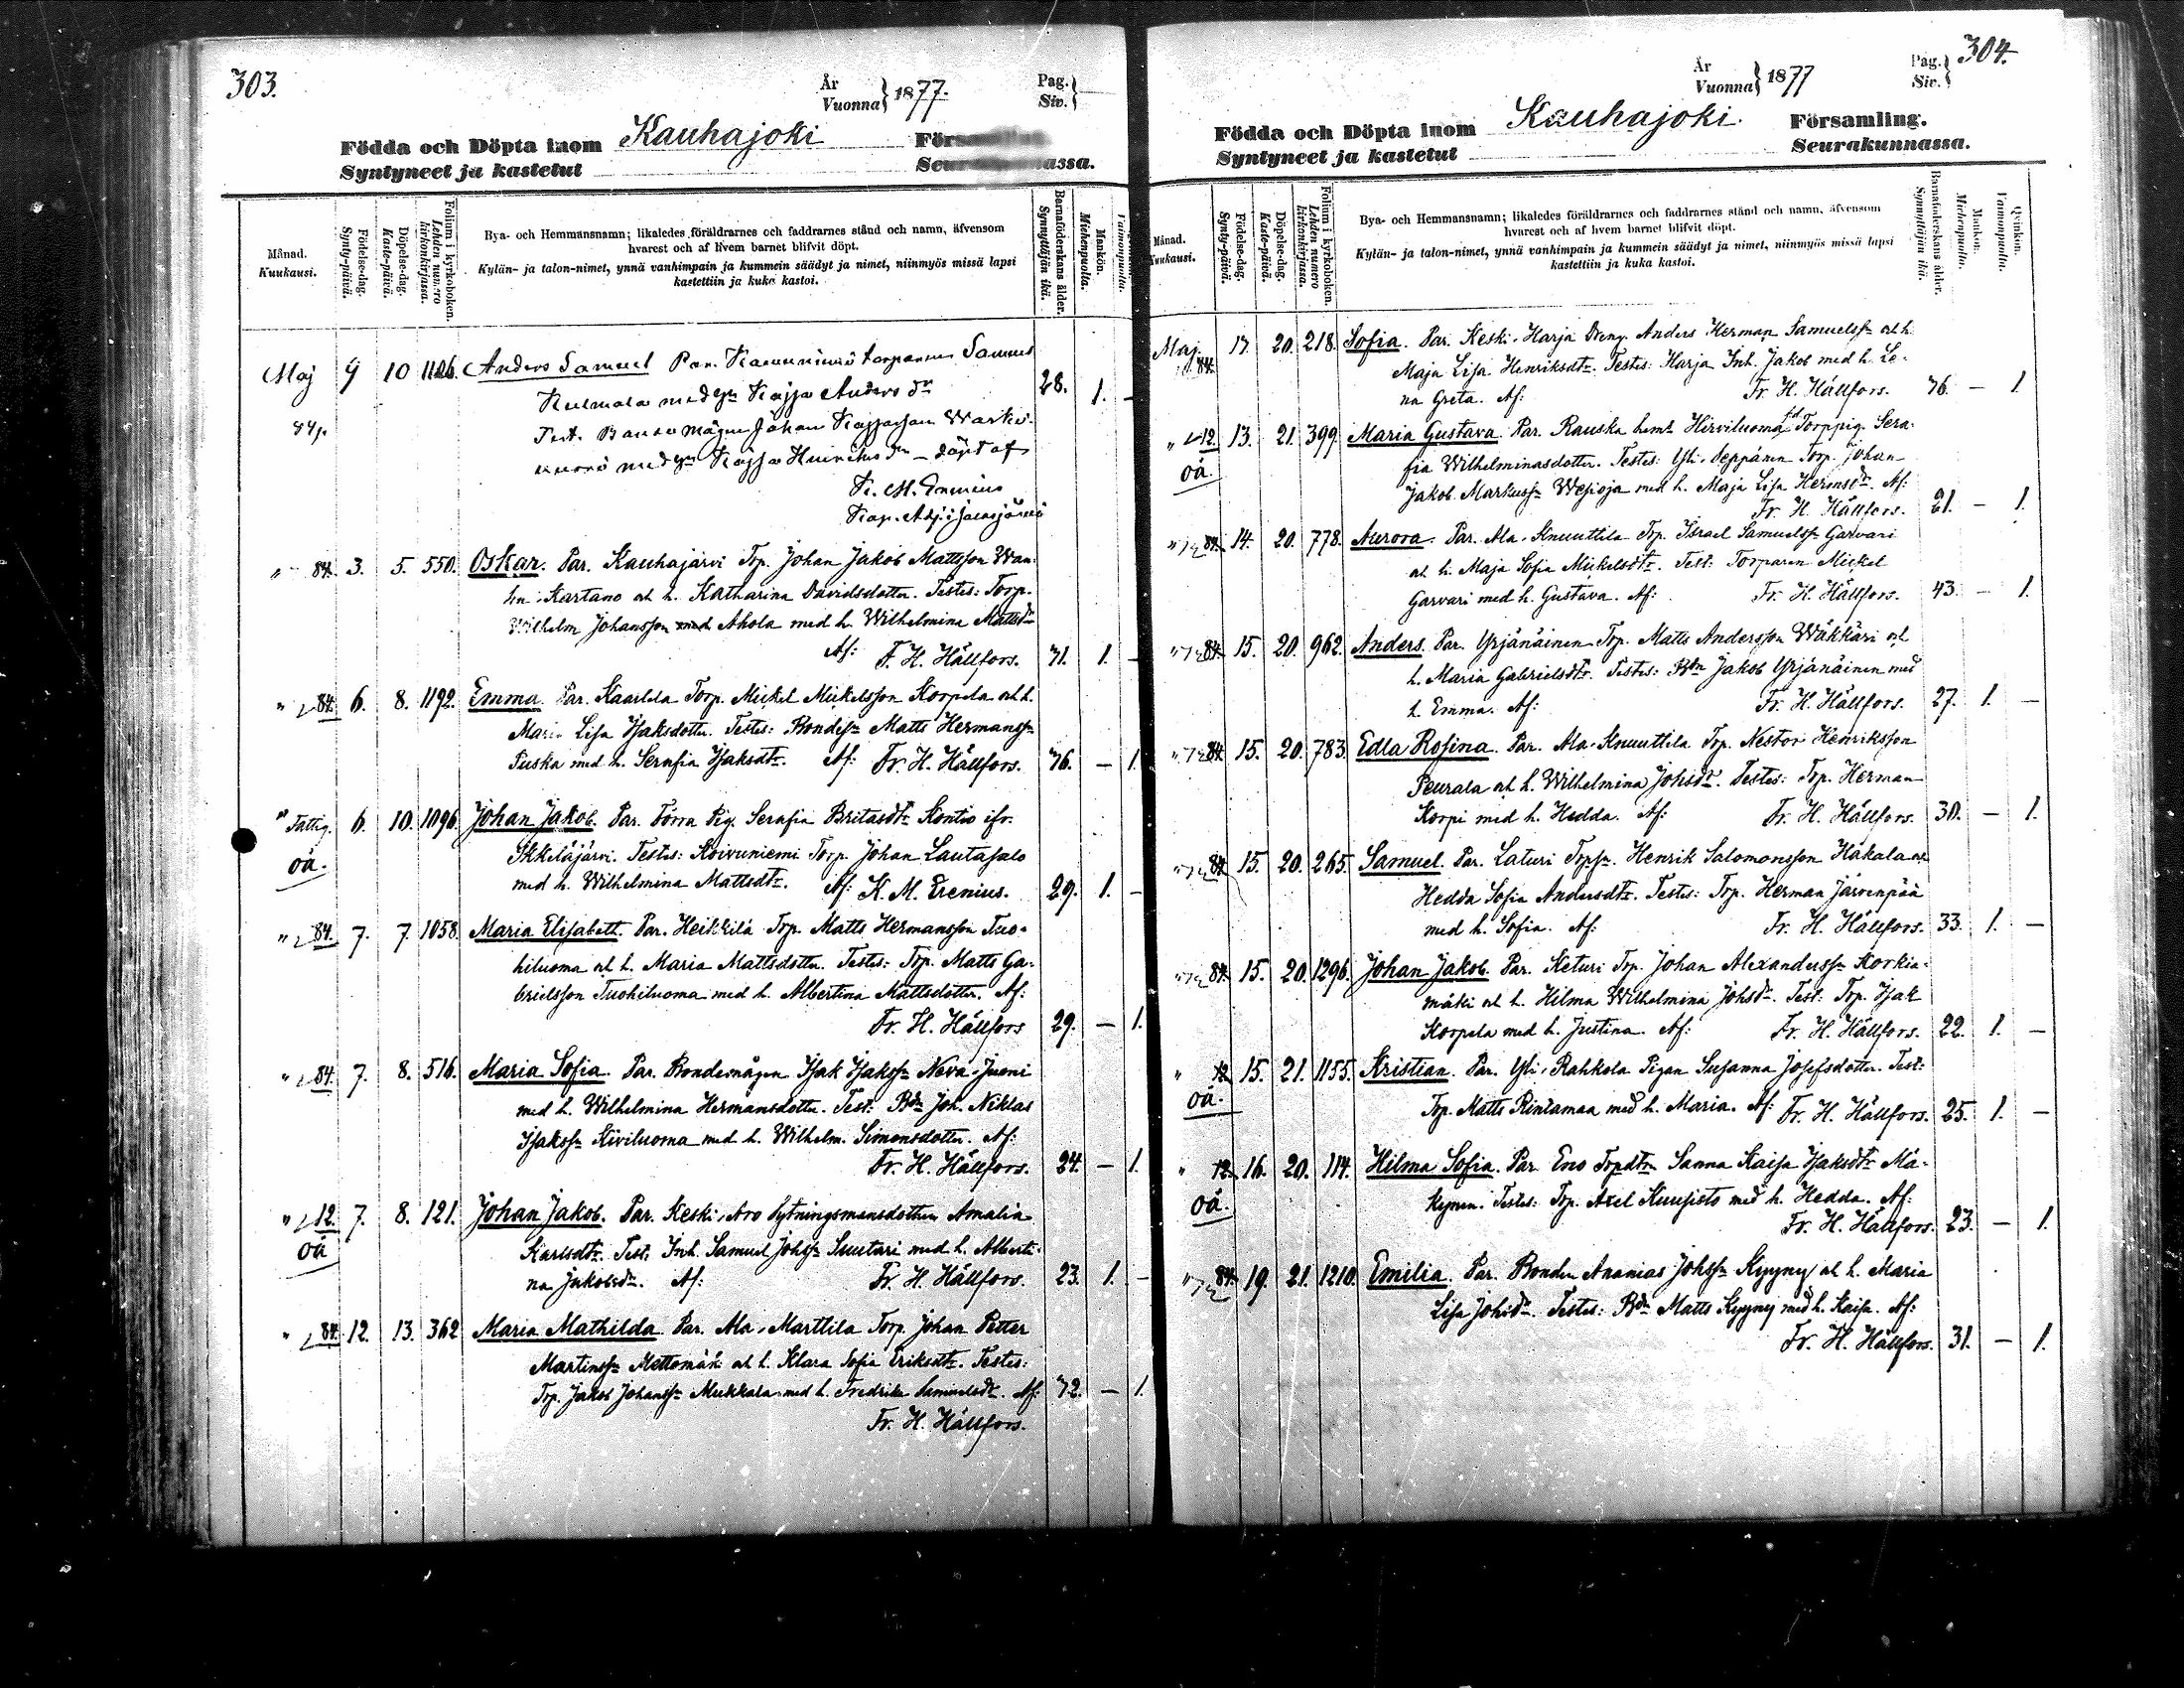 303.
År
Vuonna } 1877.
Pag.
Siv. }
Födda och Döpta inom Kauhajoki
Syntyneet ja kastetut
Månad.
Kuukausi.
Födelse-dag.
Synty-päivä.
Döpelse-dag.
Kaste-päivä.
Folium i kyrkoboken.
Lehden numero kirkonkirjassa.
Bya- och Hemmansnamn; likaledes föräldrarnes och faddrarnes stånd och namn, äfvensom
hvarest och af hvem barnet blifvit döpt.
Kylän- ja talon-nimet, ynnä vanhimpain ja kummein säädyt ja nimet, niinmyös missä lapsi
kastettiin ja kuka kastoi.
Barnaföderskans ålder.
Synnyttäjän ikä.
Mankön.
Miehenpuolta.
Vaimonpuolta.
Maj 9 10 1126. Anders Samuel Par. torparen
med hn Kajsa Anders dr 28. 1. –
84
Test. Bondemågen Johan
med hn Kajsa Henriks dr – döpt af
K. M. Erenius
Kap. Adj. i Jalasjärvi
" 84. 3. 5. 550. Oskar. Par. Kauhajärvi Torp. Johan Jakob Mattsson Wan-
hn Kartano och h. Katharina Davidsdotter. Testes: Torp.
Wilhelm Johansson Ahola med h. Wilhelmina Mattsdr
Af: F. H. Hällfors. 31. 1. –
" 84. 6. 8. 1192. Emma. Par. Kaarlela Torp. Mickel Mickelsson Korpela och h.
Maria Lisa Isaksdotter. Testes: Bondess. Matts Hermanss.
Puska med h. Serafia Isaksdtr. Af: Fr. H. Hällfors. 36. – 1.
" Fattig. 6. 10. 1096. Johan Jakob. Par. Törra Pig. Serafia Britasdtr Kontio ifr.
oä.
Ikkeläjärvi. Testes: Koivuniemi Torp. Johan Lautasalo
med h. Wilhelmina Mattsdtr. Af: K. M. Erenius. 29. 1. –
" 84. 7. 7. 1058. Maria Elisabett. Par. Heikkilä Torp. Matts Hermansson Tuo-
hiluoma och h. Maria Mattsdotter. Testes: Torp. Matts Ga-
brielsson Tuohiluoma med h. Albertina Mattsdotter. Af:
Fr. H. Hällfors 29. – 1.
" 84. 7. 8. 516. Maria Sofia. Par. Bondemågen Isak Isakss. Neva-Juoni
med h. Wilhelmina Hermansdotter. Test: Bdn Joh. Niklas
Isakss. Kiviluoma med h. Wilhelm. Simonsdotter. Af:
Fr. H. Hällfors. 24. – 1.
" 12. 7. 8. 121. Johan Jakob. Par. Keski-Aro Sytningsmansdottern Amalia
oä
Karlsdtr. Test. Inh. Samuel Johss. Suutari med h. Alberti-
na Jakobsdr. Af: Fr. H. Hällfors. 23. 1. –
" 84. 12. 13. 362 Maria Mathilda. Par. Ala-Marttila Torp. Johan Petter
Martinss. Mettomäk och h. Klara Sofia Eriksdtr. Testes:
Trp. Jakob Johanss. Mukkala med h. Fredrika Samuelsdtr. Af: 32. – 1.
Fr. H. Hällfors.
304.
År
Vuonna } 1877
Pag.
Siv. }
Födda och Döpta inom Kauhajoki. Församling.
Syntyneet ja kastetut Seurakunnassa.
Månad.
Kuukausi.
Födelse-dag.
Synty-päivä.
Döpelse-dag.
Kaste-päivä.
Folium i kyrkoboken.
Lehden numero kirkonkirjassa.
Bya- och Hemmansnamn; likaledes föräldrarnes och faddrarnes stånd och namn, äfvensom
hvarest och af hvem barnet blifvit döpt.
Kylän- ja talon-nimet, ynnä vanhimpain ja kummein säädyt ja nimet, niinmyös missä lapsi
kastettiin ja kuka kastoi.
Barnaföderskans ålder.
Synnyttäjän ikä.
Mankön.
Miehenpuolta.
Qvinkön.
Vaimonpuolta.
Maj 84. 17. 20. 218. Sofia. Par. Keski-Harja Dreng. Anders Herman Samuelss. och h.
Maja Lisa Henriksdtr. Testes: Harja Inh. Jakob med h. Le-
na Greta. Af: Fr. H. Hällfors. 36. – 1.
" 12. 13. 21. 399 Maria Gustava. Par. Rauska hemm. Hirviluoma Torppig. Sera-
oä.
fia Wilhelminasdotter. Testes: Yli-Seppänen Torp. Johan
Jakob Markuss. Wesioja med h. Maja Lisa Hermsdr. Af:
Fr. H. Hällfors. 21. – 1.
" 84. 14. 20. 778. Aurora. Par. Ala-Knuuttila Trp. Israel Samuelss. Garvari
och h. Maja Sofia Mickelsdtr. Test: Torparen Mickel
Garvari med h. Gustava. Af: Fr. H. Hällfors. 43. – 1.
" 84. 15. 20. 962. Anders. Par. Yrjänäinen Trp. Matts Andersson Wäkkäri och
h. Maria Gabrielsdtr. Testes: Bdn Jakob Yrjänäinen med
h. Emma. Af: Fr. H. Hällfors. 27. 1. –
" 84. 15. 20. 783. Edla Rosina. Par. Ala-Knuuttila Trp. Nestor Henriksson
Peurala och h. Wilhelmina Johsdr. Testes: Trp. Herman
Korpi med h. Hedda. Af: Fr. H. Hällfors. 30. – 1.
" 84. 15. 20. 265. Samuel. Par. Laturi Torps. Henrik Salomonsson Häkala och
Hedda Sofia Andersdtr. Testes: Trp. Herman Järvenpää
med h. Sofia. Af: Fr. H. Hällfors. 33. 1. –
" 84. 15. 20. 1296. Johan Jakob. Par. Keturi Trp. Johan Alexanderss. Korkia-
mäki och h. Hilma Wilhelmina Johsdr. Test: Trp. Isak
Korpela med h. Justina. Af: Fr. H. Hällfors. 22. 1. –
" 12. 15. 21. 1155. Kristian. Par. Yli-Rahkola Pigan Susanna Josefsdotter. Test:
oä.
Trp. Matts Rintamaa med h. Maria. Af: Fr. H. Hällfors. 25. 1. –
" 12. 16. 20. 114. Hilma Sofia. Par Eno Torpdtr. Sanna Kaisa Isaksdtr Mä-
oä.
kynen. Testes: Trp. Axel Kuusisto med h. Hedda. Af:
Fr. H. Hällfors. 23. – 1.
" 84. 19. 21. 1210. Emilia. Par. Bonden Ananias Johss. Kyyny och h. Maria
Lisa Johsdr. Testes: Bdn Matts Kyyny med h. Kaisa. Af:
Fr. H. Hällfors. 31. – 1.